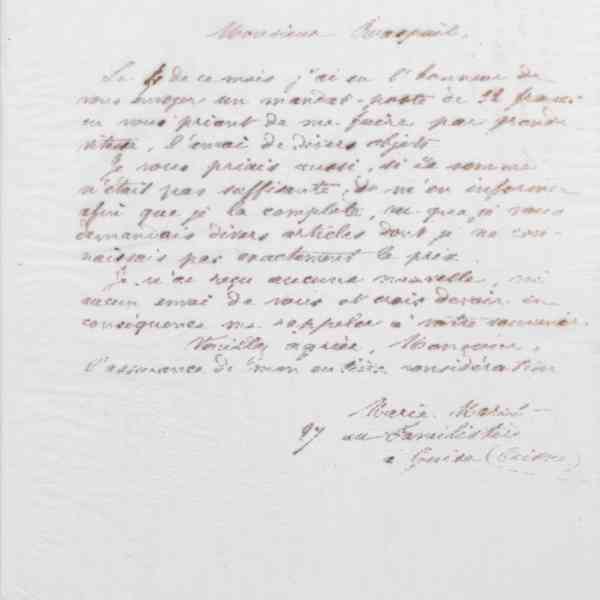 Monsieur Raspail,
Le 4 de ce mois j'ai eu l'honneur de
vous envoyer un mandat-poste de 32 francs
en vous priant de me faire par grande
vitesse, l'envoi de divers objets
Je vous priais aussi, si la somme
n'était pas suffisante, de m'en informer
afin que je la complète, vu que je vous
demandais divers articles dont je ne con-
naissais pas exactement le prix.
Je n'ai reçu aucune nouvelle, ni
aucun envoi de vous et crois devoir en
conséquence me rappeler à votre souvenir.
Veuillez agréer, Monsieur,
l'assurance de mon entière considération
Marie Moret
97 au Familistère
à Guise (Aisne)